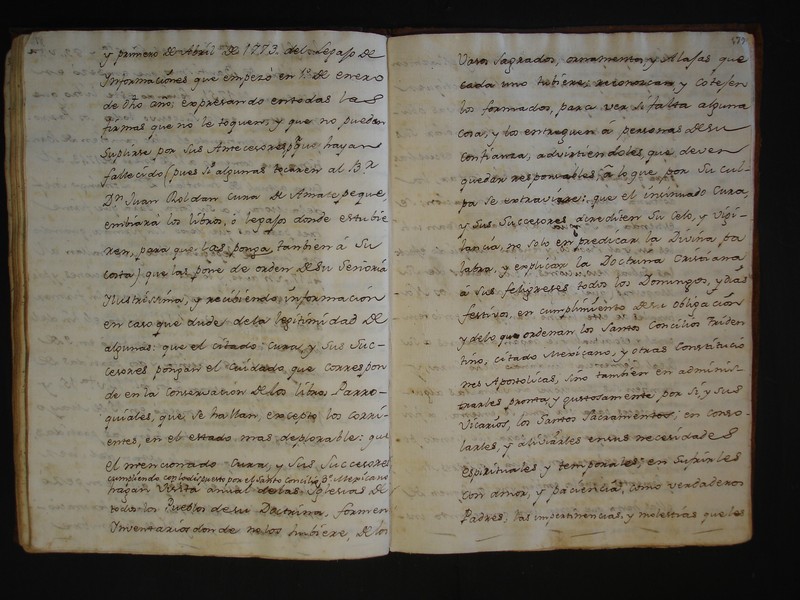 y primero de Abril de 1773. del Legajo de
Informaciones que empezó en 1º. de enero
de dho año; expresando en todas las
firmas que no le toquen, y que no puedan
Suplirse por sus Antecesores pr. que hayan
fallecido (pues si algunas tocaren al Br.
Dn. Juan Roldan cura de Amatepeque,
embiará los libros, ó legajos donde estubie
ren, para que las ponga, tambien á Su
costa) que las pone de orden de su Señoria
Illustrissima, y recibiendo informacion
en caso que dude de la legitimidad de
algunas: que el citado Cura, y sus Suc-
cesores pongan el cuidado que correspon
de en la conservacion de los libros Parro-
quiales, que se hallan, excepto los corri-
entes, en el estado mas deplorable: que
el mencionado Cura, y Sus Succesores
cumpliendo con lo dispuesto por el Santo Concilio 3º. Mexicano
hagan Visita anual de las Iglesias de
todos los Pueblos de su Doctrina, formen
Inventarios donde no los hubiere, de los
177
Vasos Sagrados, ornamentos, y Alajas que
cada uno tubiere; reconozcan y Cotejen
los formados, para ver si falta alguna
cosa, y los entreguen á personas de su
confianza, advirtiendoles que deven
quedar responsables, á lo que por su cul-
pa se extraviare: que el insinuado Cura,
y sus Succesores acrediten su celo, y Vigi-
lancia, no solo en predicar la Divina pa
labra, y explicar la Doctrina Cristiana
á sus feligreses todos los Domingos, y dias
festivos, en cumplimiento de su obligacion
y de lo que ordenan los Santos Concilios Triden
tino, citado Mexicano, y otras Constitucio
nes Apostolicas, sino tambien en adminis-
trarles pronta y gustosamente, por si, y sus
Vicarios, los Santos Sacramentos; en conso-
larles, y aliviarles en sus necesidades
Espirituales y temporales; en Sufrirles
con amor, y paciencia, como verdaderos
Padres, las impertinencias, y molestias que les